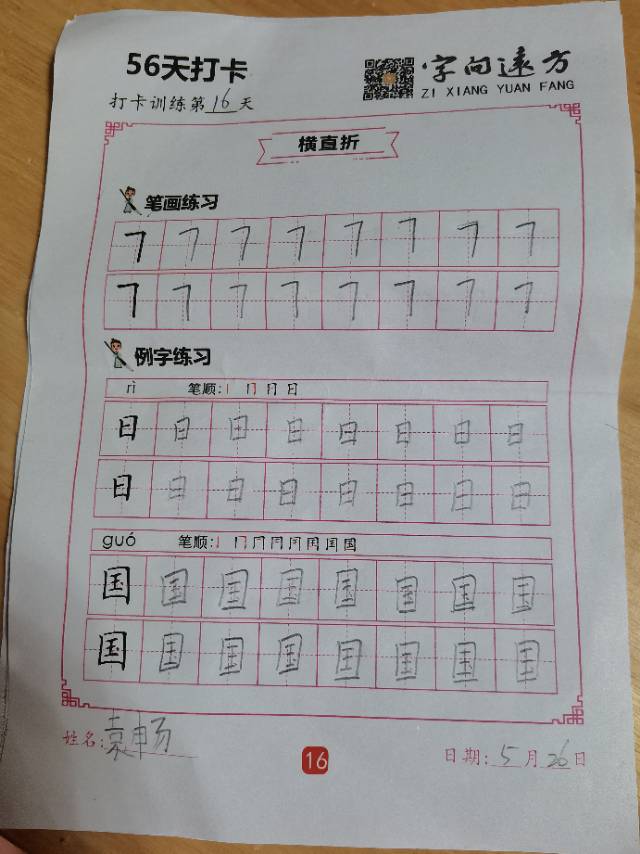 56天打卡
字向远方
ZI XIANG YUAN FANG
打卡训练第16天
横直折
笔画练习
㇕ ㇕ ㇕ ㇕ ㇕ ㇕ ㇕ ㇕
㇕ ㇕ ㇕ ㇕ ㇕ ㇕ ㇕ ㇕
例字练习
rì 笔顺: 丨 冂 月 日
日 日 日 日 日 日 日 日
日 日 日 日 日 日 日 日
guó 笔顺: 丨 冂 冂 冂 冃 囯 国 国
国 国 国 国 国 国 国 国
国 国 国 国 国 国 国 国
姓名: 袁畅
16
日期: 5月26日